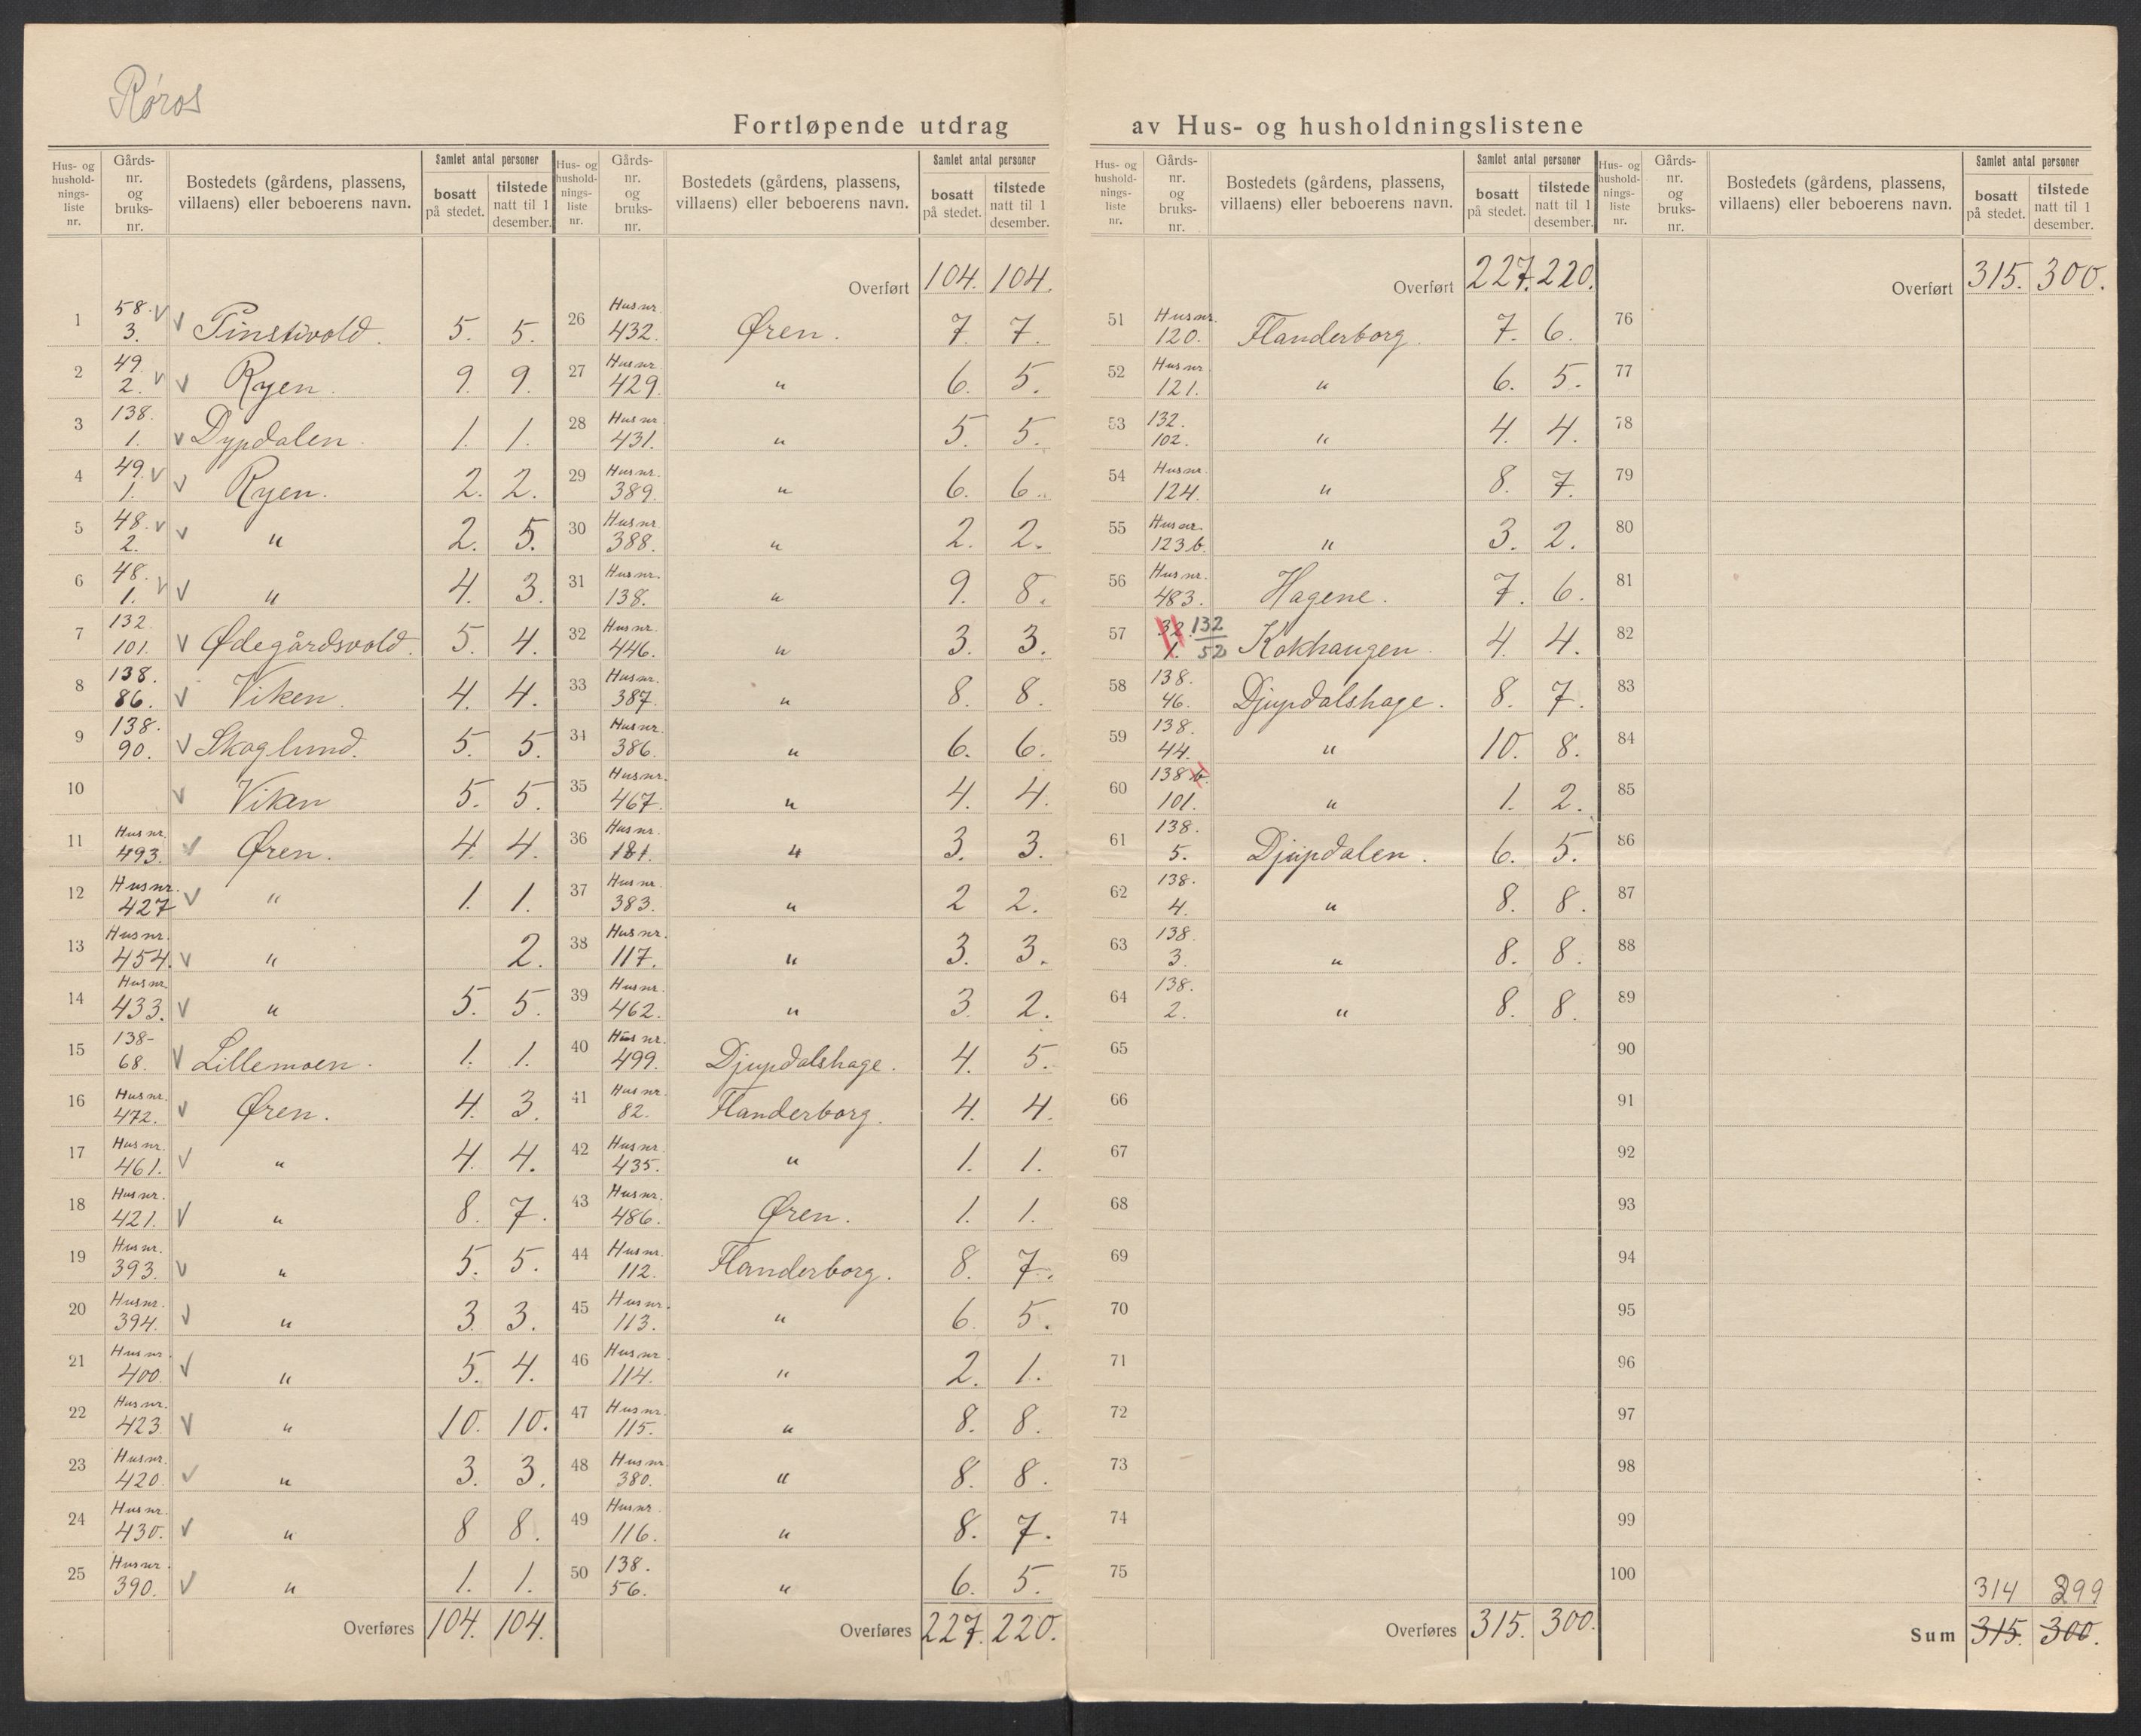 Røros
Fortløpende utdrag av Hus- og husholdningslistene
Hus- og hushold-nings-liste nr. | Gårds-nr. og bruks-nr. | Bostedets (gårdens, plassens, villaens) eller beboerens navn. | Samlet antal personer | bosatt på stedet. | tilstede natt til 1 desember.
1 58. 3. v v Tinstivold. 5. 5.
2 49. 2. v v Ryen. 9. 9.
3 138. 1. v Dypdalen 1. 1.
4 49. 1. v v Ryen. 2. 2.
5 48. 2. v v " 2. 5.
6 48. 1. v v " 4. 3.
7 132. 101. v Ødegårdsvold. 5. 4.
8 138. 86. v Viken. 4. 4.
9 138. 90. v Skoglund. 5. 5.
10 v Viken 5. 5.
11 Hus nr. 493. v Øren. 4. 4.
12 Hus nr. 427 v " 1. 1.
13 Hus nr. 454. v " 2.
14 Hus nr. 433. v " 5. 5.
15 138- 68. v Lillemoen. 1. 1.
16 Hus nr. 472. v Øren. 4. 3.
17 Hus nr. 461. v " 4. 4.
18 Hus nr. 421. v " 8. 7.
19 Hus nr. 393. v " 5. 5.
20 Hus nr. 394. v " 3. 3.
21 Hus nr. 400. v " 5. 4.
22 Hus nr. 423. v " 10. 10.
23 Hus nr. 420. v " 3. 3.
24 Hus nr. 430. v " 8 8.
25 Hus nr. 390. v " 1. 1.
Overføres 104. 104.
Hus- og hushold-nings-liste nr. | Gårds-nr. og bruks-nr. | Bostedets (gårdens, plassens, villaens) eller beboerens navn. | Samlet antal personer | bosatt på stedet. | tilstede natt til 1 desember.
Overført 104. 104.
26 Hus nr. 432. Øren. 7. 7.
27 Hus nr. 429. " 6. 5.
28 Hus nr. 431. " 5. 5.
29 Hus nr. 389. " 6. 6.
30 Hus nr. 388. " 2. 2.
31 Hus nr. 138. " 9. 8.
32 Hus nr. 446. " 3. 3.
33 Hus nr. 387. " 8. 8.
34 Hus nr. 386. " 6. 6.
35 Hus nr. 467. " 4. 4.
36 Hus nr. 181. " 3. 3.
37 Hus nr. 383. " 2 2.
38 Hus nr. 117. " 3. 3.
39 Hus nr. 462. " 3. 2.
40 Hus nr. 499. Djupdalshage. 4. 5.
41 Hus nr. 82. Flanderborg. 4. 4.
42 Hus nr. 435. " 1. 1.
43 Hus nr. 486. Øren. 1. 1.
44 Hus nr. 112. Flanderborg. 8. 7.
45 Hus nr. 113. " 6. 5.
46 Hus nr. 114. " 2. 1.
47 Hus nr. 115. " 8. 8.
48 Hus nr. 380. " 8. 8.
49 Hus nr. 116. " 8. 7.
50 138. 56. " 6. 5.
Overføres 227. 220.
Hus- og hushold-nings-liste nr. | Gårds-nr. og bruks-nr. | Bostedets (gårdens, plassens, villaens) eller beboerens navn. | Samlet antal personer | bosatt på stedet. | tilstede natt til 1 desember.
Overført 227. 220.
51 Hus nr. 120. Flanderborg. 7. 6.
52 Hus nr. 121. " 6. 5.
53 132. 102. " 4. 4.
54 Hus nr. 124. " 8. 7.
55 Hus nr. 123b. " 3. 2.
56 Hus nr. 483. Hagene. 7. 6.
57 32. 1. 132 52 Kokhaugen. 4. 4.
58 138. 46. Djupdalshage. 8. 7.
59 138. 44. " 10. 8.
60 138 b. 101. " 1. 2.
61 138. 5. Djupdalen. 6. 5.
62 138. 4. " 8. 8.
63 138. 3. " 8. 8.
64 138. 2. " 8. 8.
65
66
67
68
69
70
71
72
73
74
75
Overføres 315. 300.
Hus- og hushold-nings-liste nr. | Gårds-nr. og bruks-nr. | Bostedets (gårdens, plassens, villaens) eller beboerens navn. | Samlet antal personer | bosatt på stedet. | tilstede natt til 1 desember.
Overført 315. 300.
76
77
78
79
80
81
82
83
84
85
86
87
88
89
90
91
92
93
94
95
96
97
98
99
100
314 299
Sum 315. 300.